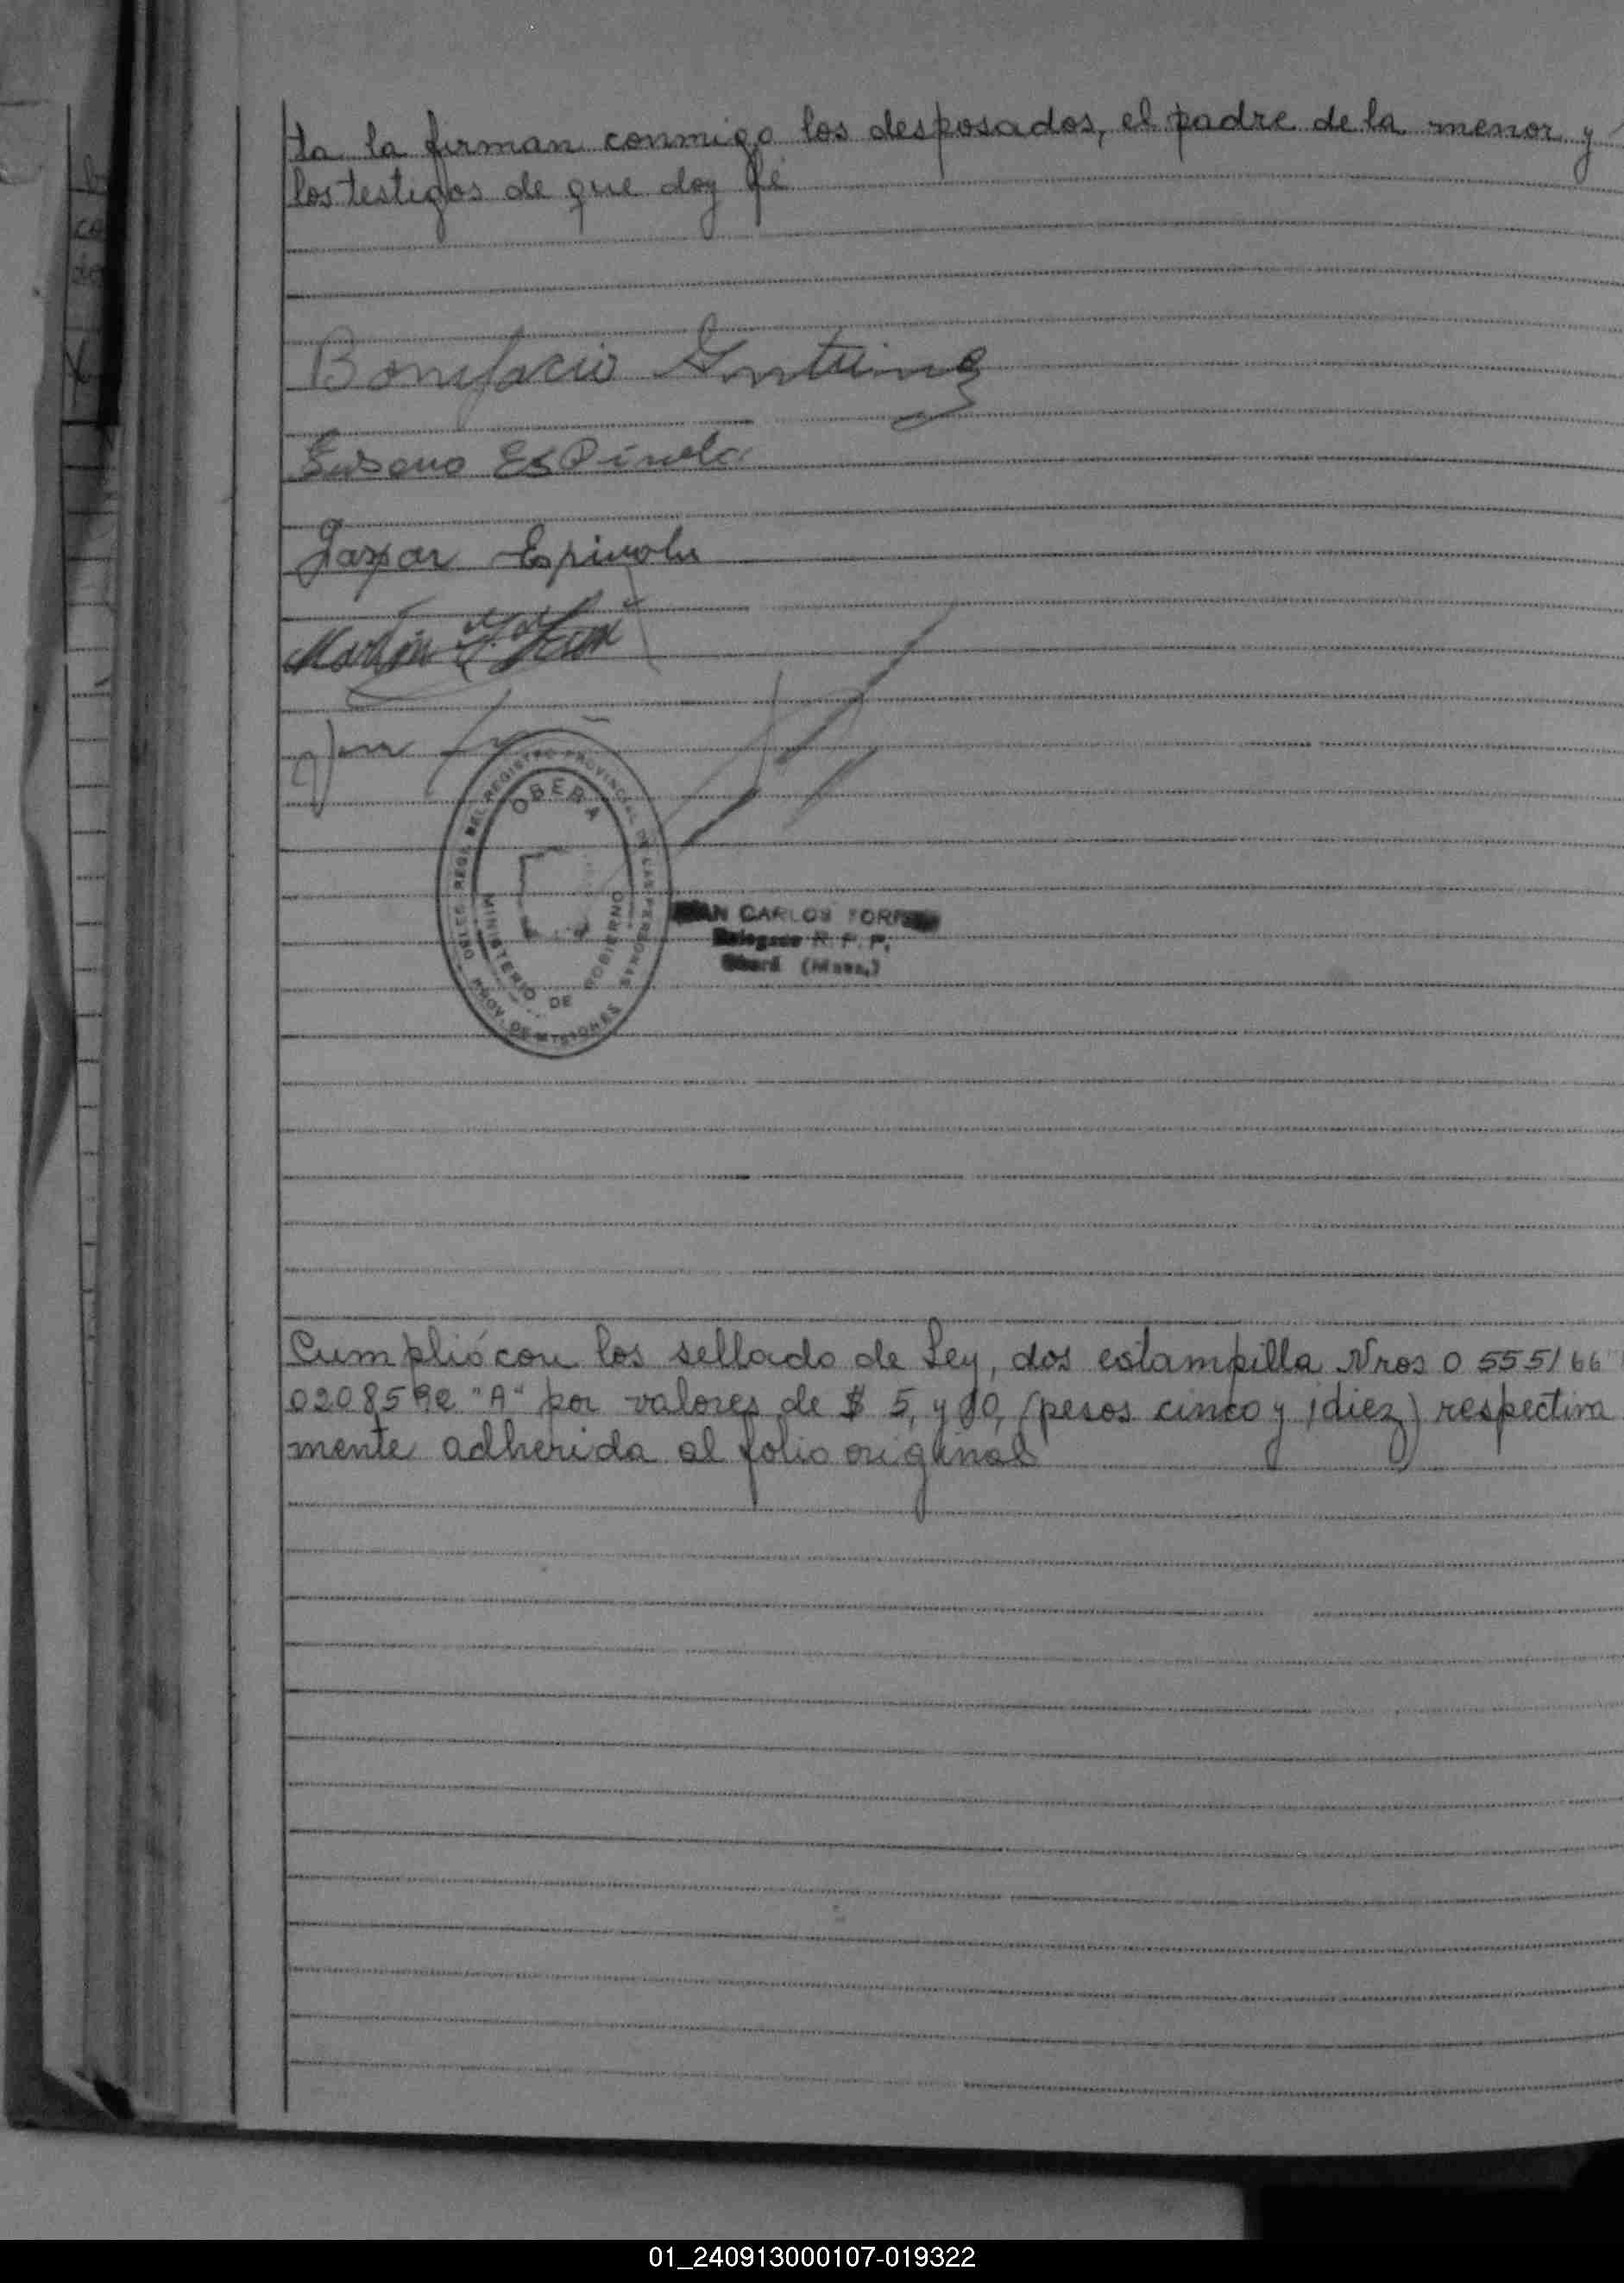 ta la firman conmigo los desposados, el padre de la menor y
los testigos de que doy fé
Bonifacio
Espinola
Gaspar Espinola
Martin
OBERA
REGISTRO PROVINCIAL DE LAS PERSONAS
MINISTERIO DE GOBIERNO
PROV. DE MISIONES
CARLOS
Delegado R. P. P.
Oberá (Mnes.)
Cumplió con los sellado de Ley, dos estampilla Nros 0 555166
"A" por valores de $ 5, y 10, (pesos cinco y diez) respectiva
mente adherida al folio original
01_240913000107-019322